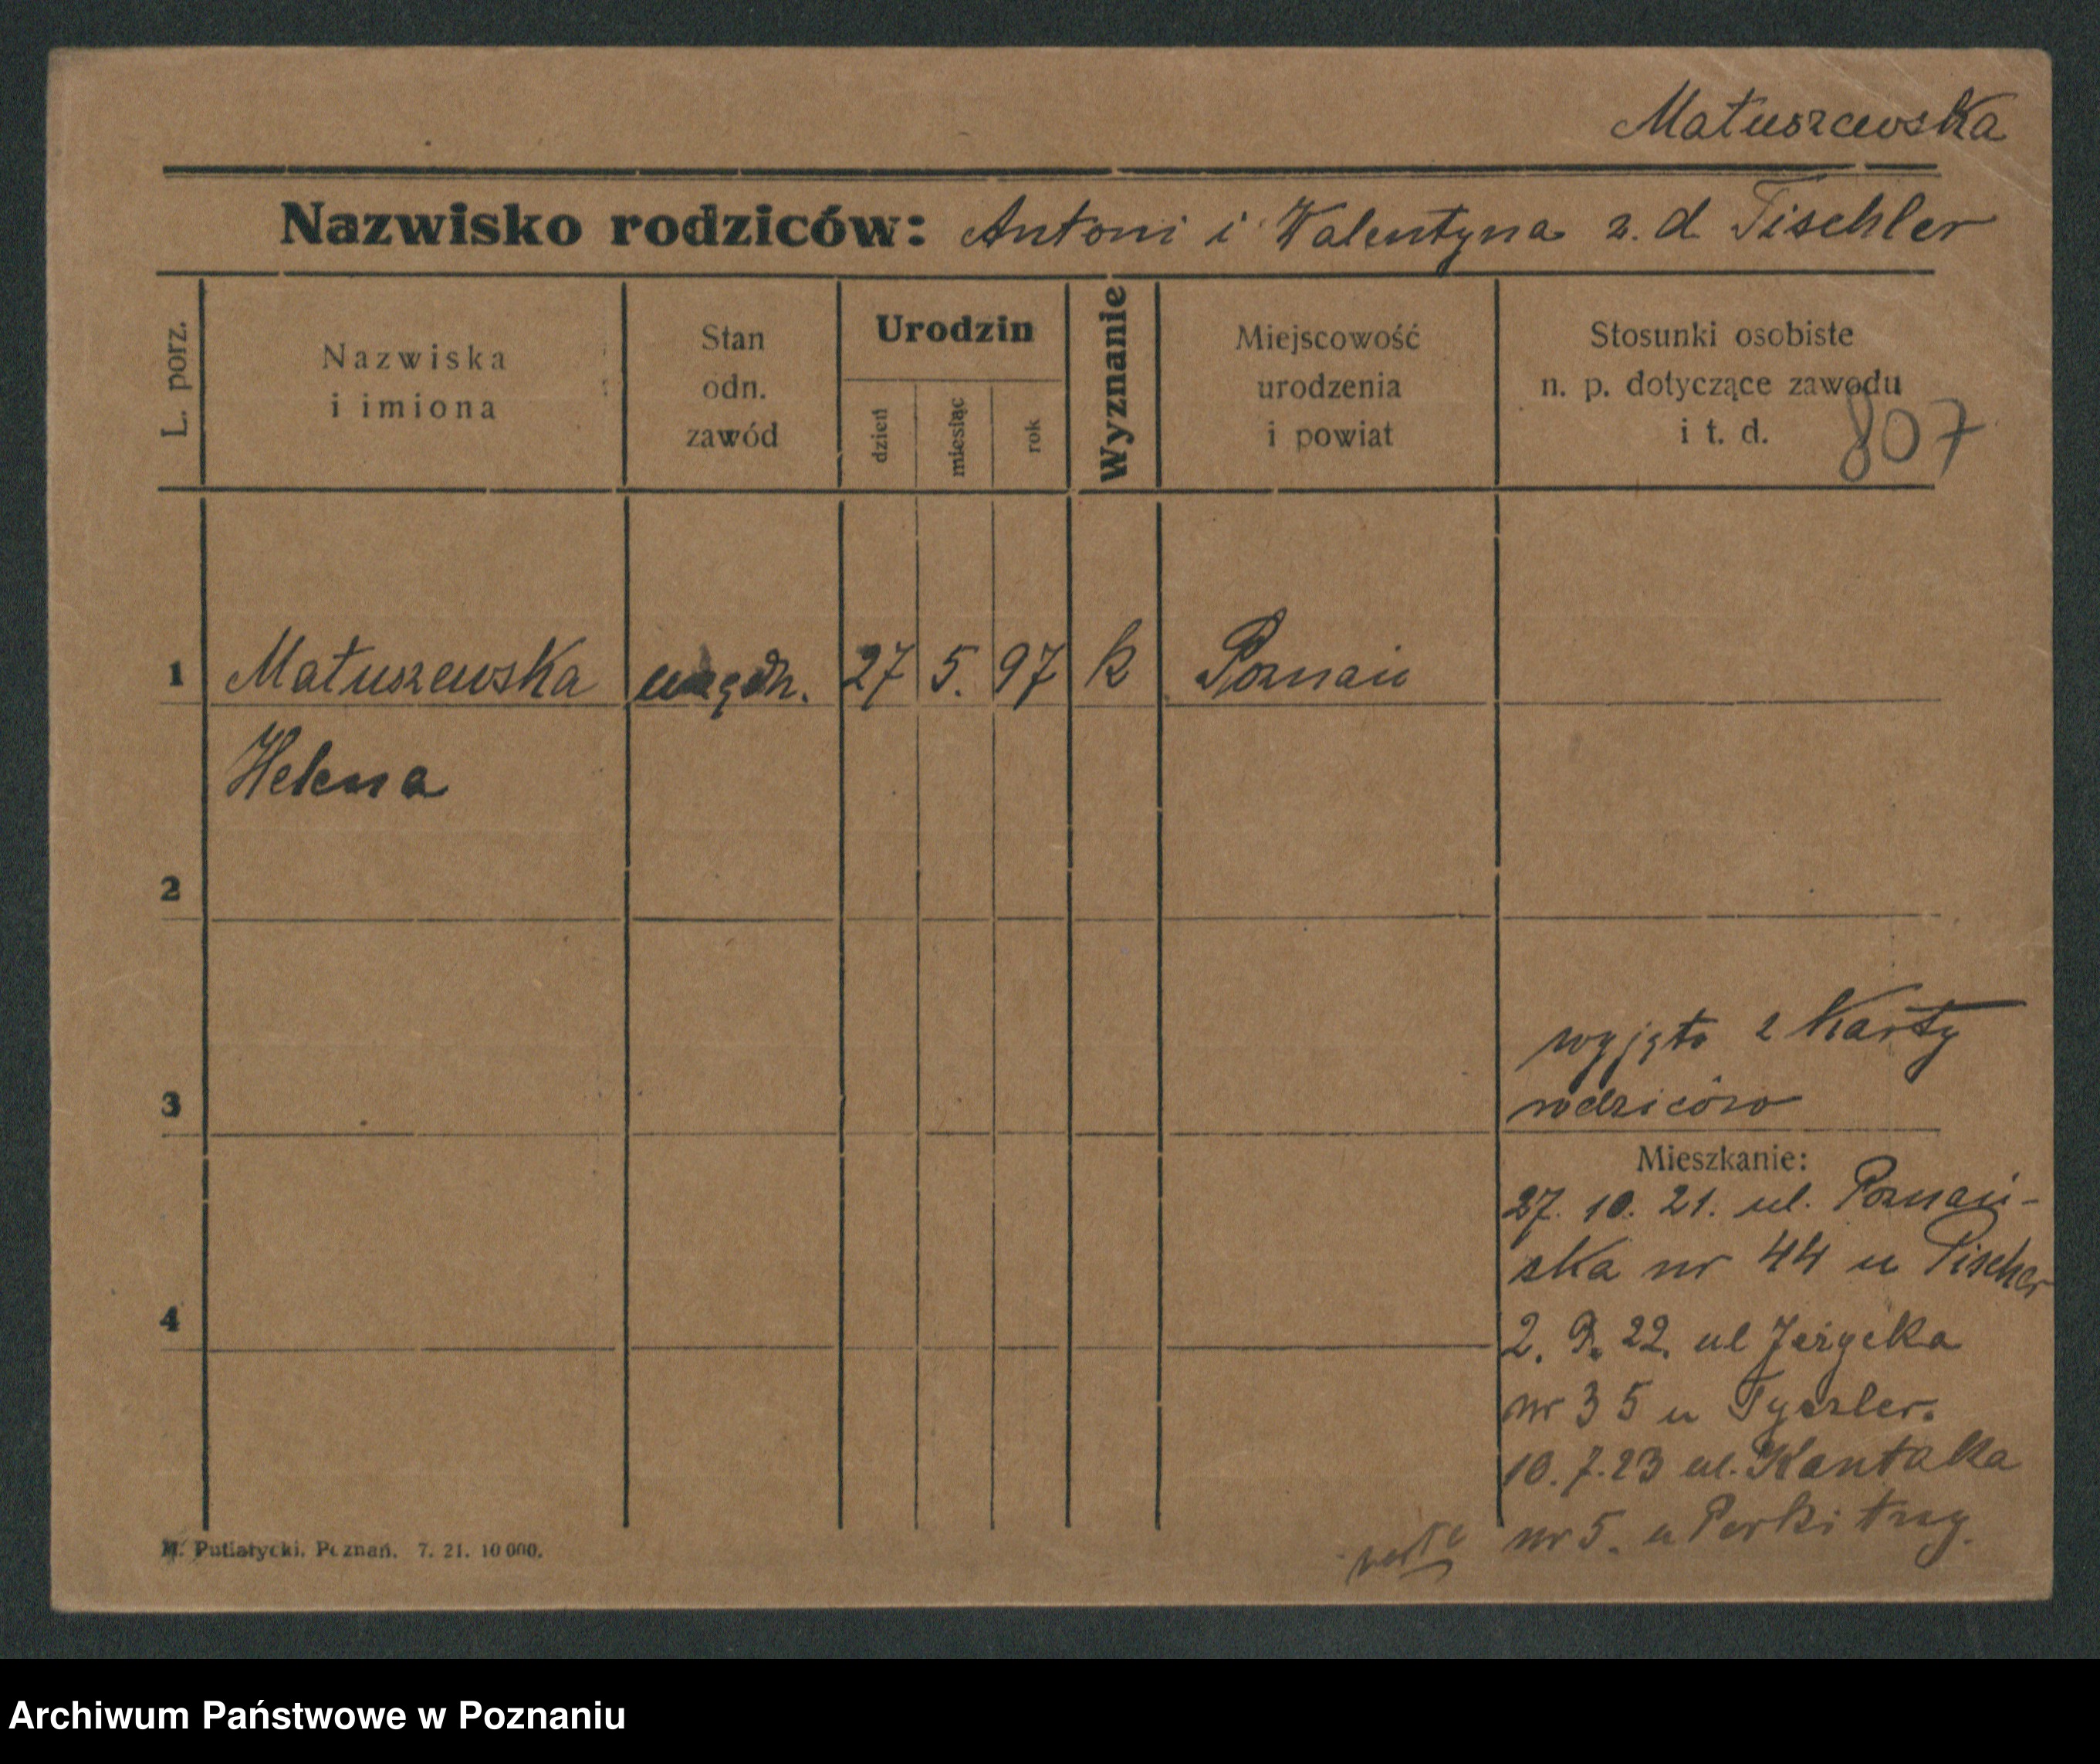 Matuszewska
Nazwisko rodziców: Antoni i Walentyna z. d Tischler
L. porz.
Nazwiska
i imiona
Stan
odn.
zawód
Urodzin
dzień
miesiąc
rok
Wyznanie
Miejscowość
urodzenia
i powiat
Stosunki osobiste
n. p. dotyczące zawodu
i t. d.
807
1 Matuszewska 27 5. 97 k Poznań
Helena
2
3
wyjęto z Karty
rodziców
Mieszkanie:
27. 10. 21. ul. Poznań-
ska nr 44 u Tischer
4
2. 9. 22. ul Jeżycka
nr 35 u Tyszler.
10. 7. 23 ul. Kantaka
nr 5. u
M. Putiatycki, Poznań. 7. 21. 10 000.
Archiwum Państwowe w Poznaniu